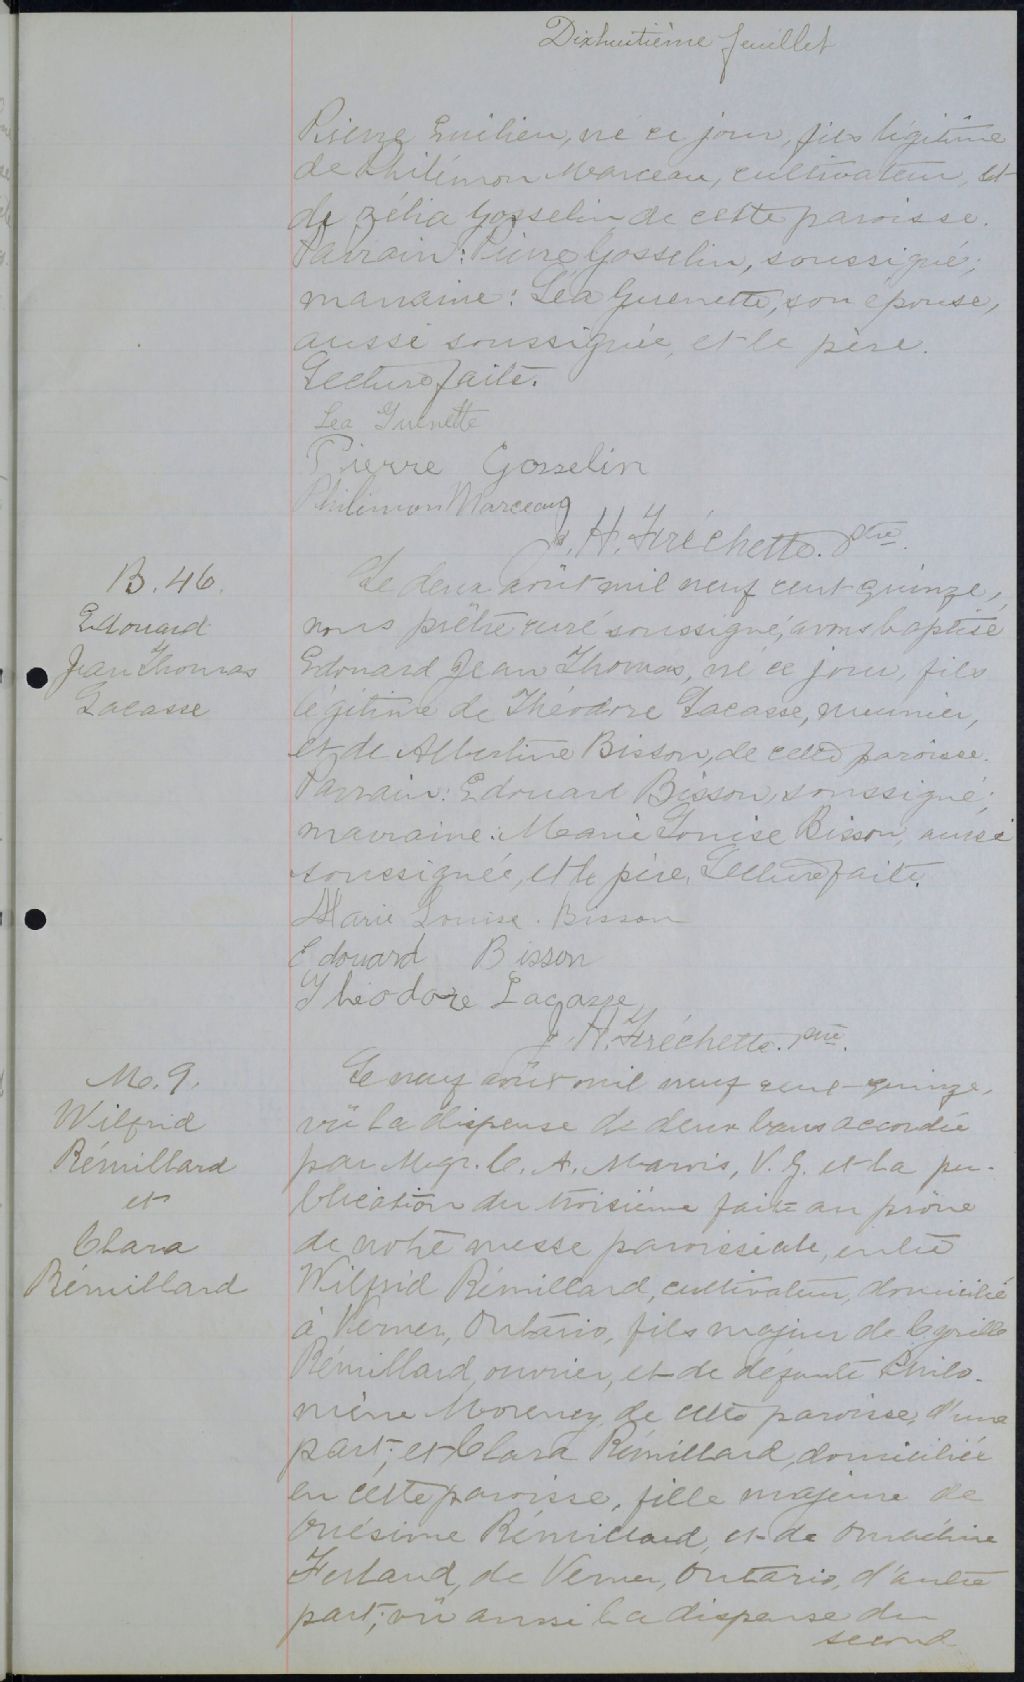 Dixhuitième feuillet
Pierre Emilien, né ce jour, fils légitime
de Philémon Marceau, cultivateur, et
de Zélia Gosselin de cette paroisse.
Parrain: Pierre Gosselin, soussigné;
marraine: Léa Guenette, son épouse,
aussi soussignée, et le père.
Lecture faite.
Lea Guenette
Pierre Gosselin
Philimon Marceau
J. H. Fréchette. Ptre.
B. 46.
Edouard
Jean Thomas
Lacasse
Le deux août mil neuf cent quinze,
nous prêtre curé soussigné, avons baptisé
Edouard Jean Thomas, né ce jour, fils
légitime de Théodore Lacasse, meunier,
et de Albertine Bisson, de cette paroisse.
Parrain: Edouard Bisson, soussigné;
marraine: Marie Louise Bisson, aussi
soussignée, et le père. Lecture faite.
Marie Louise. Bisson
Edouard Bisson
Théodore Lacasse
J. H. Fréchette. ptre.
M. 9.
Wilfrid
Rémillard
et
Clara
Rémillard
Le neuf août mil neuf cent quinze,
vû la dispense de deux bans accordée
par Mgr. C. A. Marois, V. G. et la pu-
blication du troisième faite au prône
de notre messe paroissiale, entre
Wilfrid Rémillard, cultivateur, domicilié
à Verner, Ontario, fils majeur de Cyrille
Rémillard, ouvrier, et de défunte Philo-
mène Morency, de cette paroisse, d'une
part; et Clara Rémillard, domiciliée
en cette paroisse, fille majeure de
Onésime Rémillard, et de Ombéline
Ferland, de Verner, Ontario, d'autre
part; vû aussi la dispense du
second